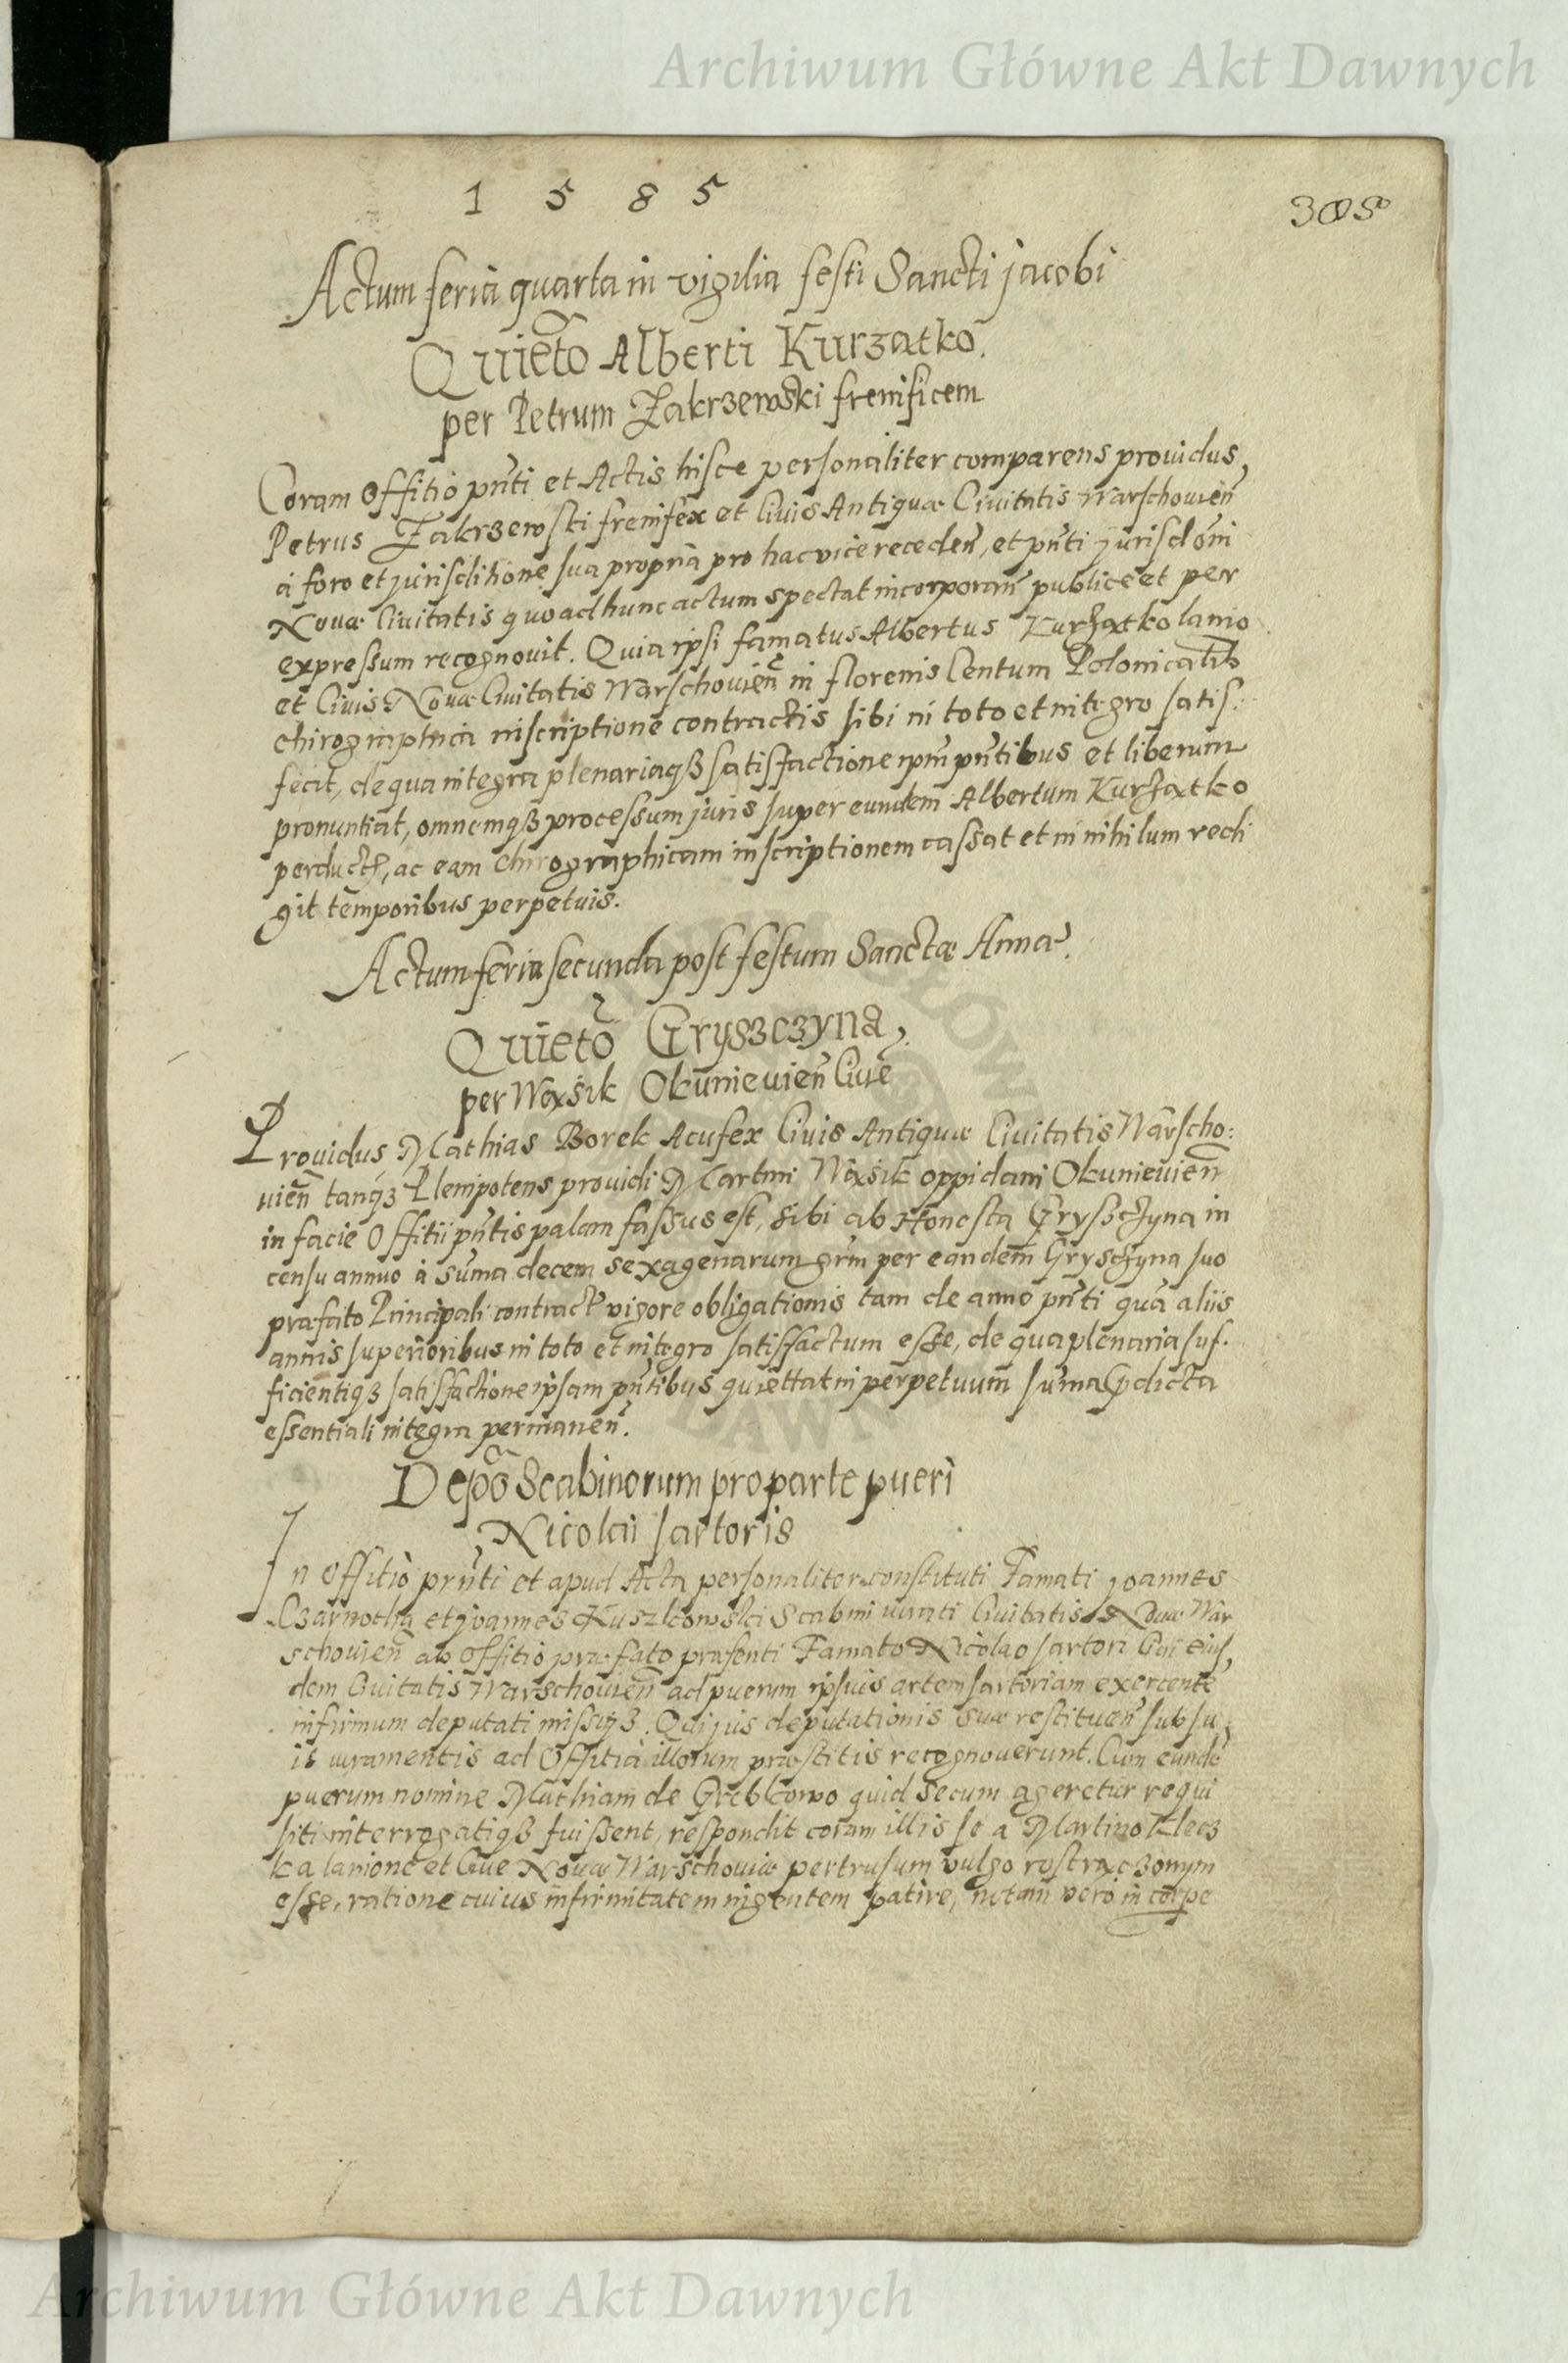 Archiwum Główne Akt Dawnych
1 5 8 5
Actum feria quarta in vigilia festi Sancti jacobi
Quieto Alberti Kurzatko
per Petrum Zakrzewski frenificem
Coram Offitio pnti et Actis hisce personaliter comparens prouidus
Petrus Zakrzewski frenifex et Ciuis Antiquæ Ciuitatis Warschouien
a foro et jurisditione sua propria pro hac vice receden, et pnti jurisdoni
Nouæ Ciuitatis quo ad hunc actum spectat incorporan publice et per
expressum recognovit. Quia ipsi famatus Albertus Kurzatko lanio
et Ciuis Nouæ Ciuitatis Warschouien in florenis Centum Polonicalib
chirographica inscriptione contractis sibi in toto et integro satis:
fecit, de qua integra plenariaqз satisfactione ipm pntibus et liberum
pronuntiat, omnemqз processum juris super eundem Albertum Kurzatko
perduct, ac eam chirographicam inscriptionem cassat et in nihilum redi
git temporibus perpetuis.
Actum feria secunda post festum Sanctæ Annæ.
Quieto Gryszczyna,
per Woxsik Okunieuien Ciue
Prouidus Mathias Borek Acufex Ciuis Antiquæ Ciuitatis Warscho:
uien tanqз Plenipotens prouidi Martini Woxsik oppidani Okunieuien
in facie Offitii pntis palam fassus est, sibi ab Honesta Gryszczyna in
censu annuo à suma decem sexagenarum grm per eandem Gryszczyna suo
præfato Principali contract vigore obligationis tam de anno pnti qua aliis
annis superioribus in toto et integro satisfactum esse, de qua plenaria suf.
ficientiqз satisfactione ipsam pntibus quiettat in perpetuum suma pdicta
essentiali integra permanen.
Depo Scabinorum pro parte pueri
Nicolai sartoris
In Offitio prnti et apud Acta personaliter constituti Famati Joannes
Czarnocha et Joannes Kuszkowski Scabini iurati Ciuitatis Nouæ War
schouien ab Offitio præfato præsenti Famato Nicolao sartori Ciui eius
dem Ciuitatis Warschouien ad puerum ipsius artem sartoriam exercente
infirmum deputati missiqз. Qui ius deputationis suæ restituen sub su
is iuramentis ad Offitia illorum præstitis recognouerunt. Cum eunde
puerum nomine Mathiam de Grebkowo quid secum ageretur requi
siti interrogatiqз fuissent, respondit coram illis se a Martino Klecz
ka lanione et Ciue Nouæ Warschouiæ pertrusum vulgo rostraczonym
esse, ratione cuius infirmitatem ingentem patire, notam vero in corpe
Archiwum Główne Akt Dawnych